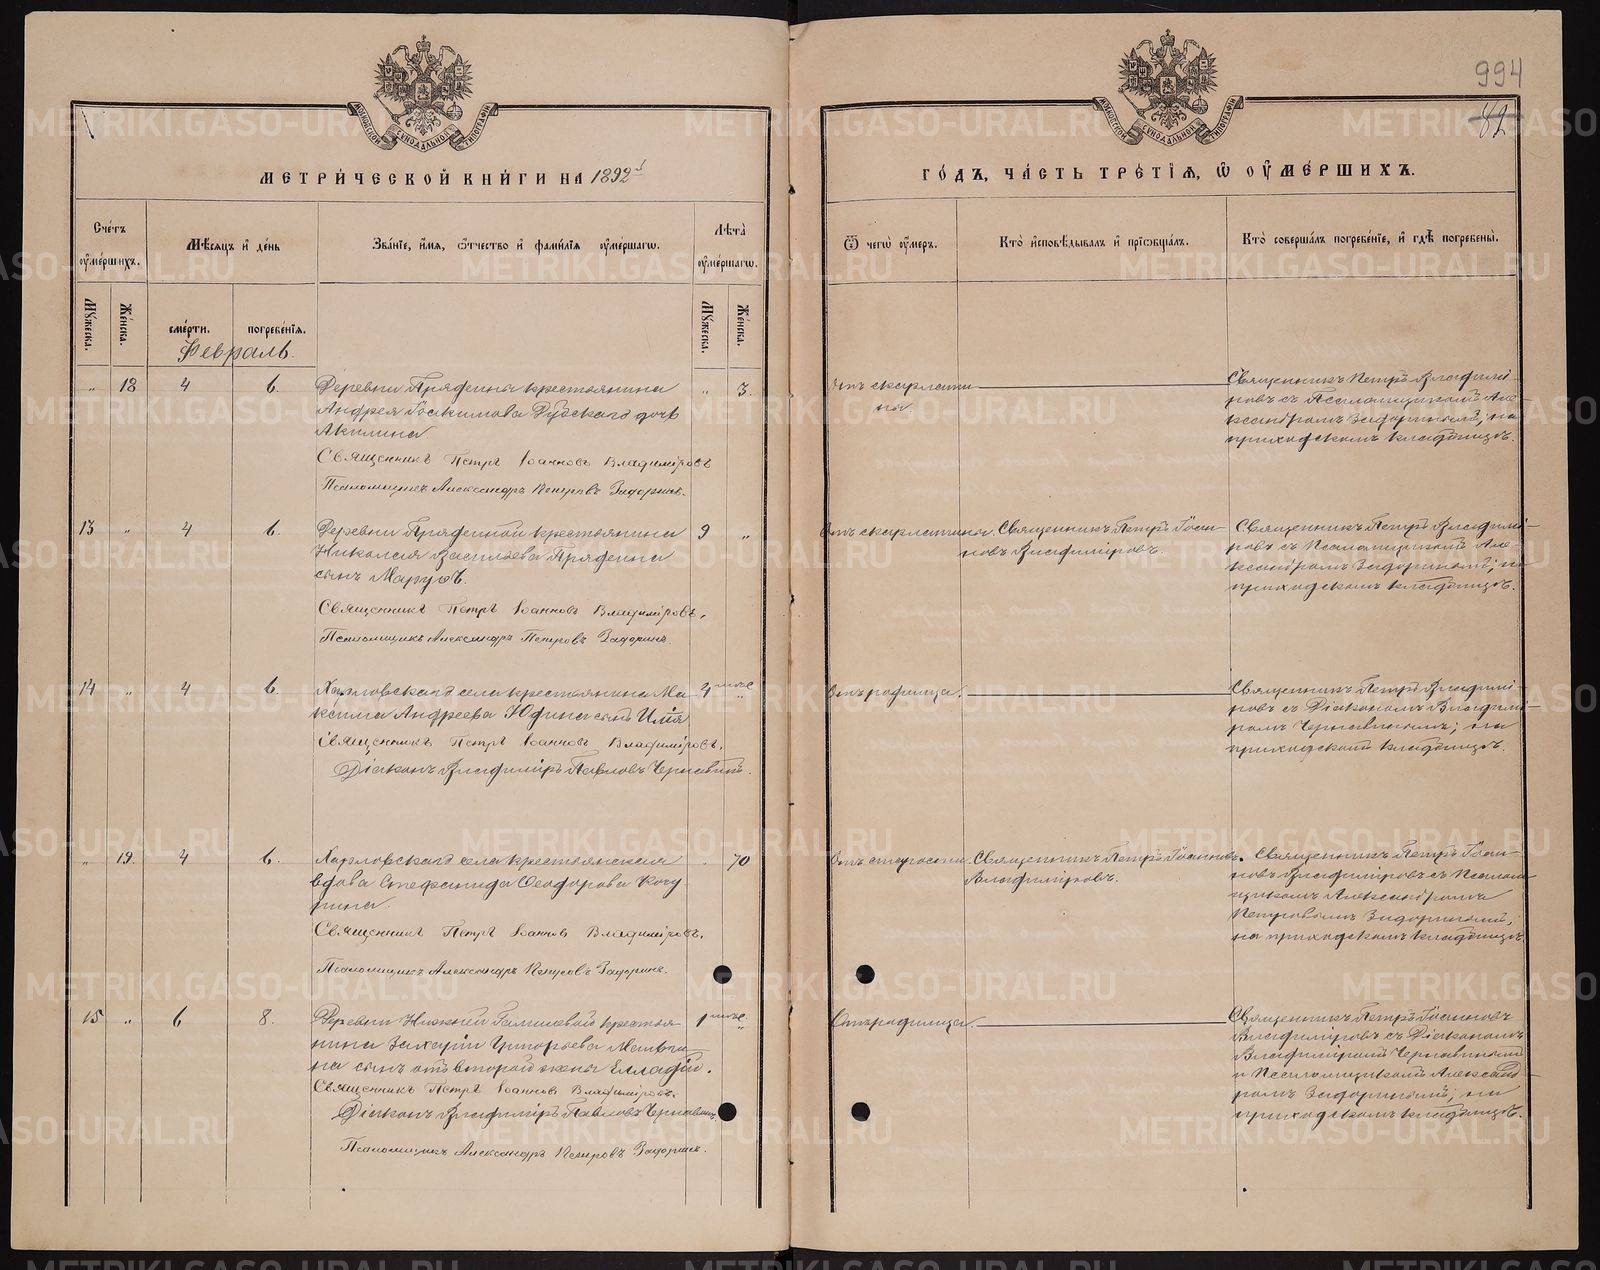 МОСКОВСКОЙ СѴНОДАЛЬНОЙ ТИПОГРАФІИ
МЕТРИ́ЧЕСКОЙ КНИ́ГИ НА 1892
Сче́тъ оу҆ме́ршихъ.
Мѣ́сяцъ и҆ де́нь
Зва́нїе, и҆́мя, ѻ҆́тчество и҆ фами́лїя оу҆ме́ршагѡ.
Лѣ́та оу҆ме́ршагѡ.
Мꙋ́жеска.
Же́нска.
сме́рти.
погребе́нїя.
Мꙋ́жеска.
Же́нска.
Февраль.
„ 18 4 6. Деревни Прядеиной крестьянина „ 3.
Андрея Іоакимова Рудскаго дочь
Акилина
Священникъ Петръ Іоанновъ Владиміровъ
Псаломщикъ Александръ Петровъ Задоринъ.
13 „ 4 6. Деревни Прядеиной крестьянина 9 „
Николая Васильева Прядеина
сынъ
Священникъ Петръ Іоанновъ Владиміровъ.
Псаломщикъ Александръ Петровъ Задоринъ.
14 „ 4 6. Харловскаго села крестьянина Ма- 4 мѣс „
ксима Андреева Юдина сынъ Илія
Священникъ Петръ Іоанновъ Владиміровъ.
Діаконъ Владиміръ Павловъ Чернавинъ.
„ 19. 4 6. Харловскаго села крестьянская „ 70
вдова Стефанида Ѳеодорова Кочу-
рина.
Священникъ Петръ Іоанновъ Владиміровъ.
Псаломщикъ Александръ Петровъ Задоринъ.
15 „ 6 8. Деревни Нижней крестья- 1 мѣс. „
нина Захаріи Григорьева
на сынъ отъ второй жены Елладій.
Священникъ Петръ Іоанновъ Владиміровъ.
Діаконъ Владиміръ Павловъ Чернавинъ
Псаломщикъ Александръ Петровъ Задоринъ.
994
82
МОСКОВСКОЙ СѴНОДАЛЬНОЙ ТИПОГРАФІИ
ГО́ДЪ, ЧА́СТЬ ТРЕ́ТЇЯ, Ѡ҆ ОУ҆МЕ́РШИХЪ.
Ѿ чегѡ̀ оу҆́меръ.
Кто̀ и҆сповѣ́дывалъ и҆ прїѡбща́лъ.
Кто̀ соверша́лъ погребе́нїе, и҆ гдѣ̀ погребены̀.
Отъ скарлати- Священникъ Петръ Владимі-
на. ровъ съ Псаломщикомъ Але-
ксандромъ Задоринымъ; на
приходскомъ кладбищѣ.
Отъ скарлатины. Священникъ Петръ Іоан- Священникъ Петръ Владимі-
новъ Владиміровъ. ровъ съ Псаломщикомъ Але-
ксандромъ Задоринымъ; на
приходскомъ кладбищѣ.
Отъ родимца. Священникъ Петръ Владимі-
ровъ съ Діакономъ Владимі-
ромъ Чернавинымъ; на
приходскомъ кладбищѣ.
Отъ старости. Священникъ Петръ Іоанновъ Священникъ Петръ Іоан-
Владиміровъ. новъ Владиміровъ съ Псалом-
щикомъ Александромъ
Петровымъ Задоринымъ;
на приходскомъ кладбищѣ.
Отъ родимца. Священникъ Петръ Іоанновъ
Владиміровъ съ Діакономъ
Владиміромъ Чернавинымъ
и Псаломщикомъ Александ-
ромъ Задоринымъ; на
приходскомъ кладбищѣ.
METRIKI.GASO-URAL.RU